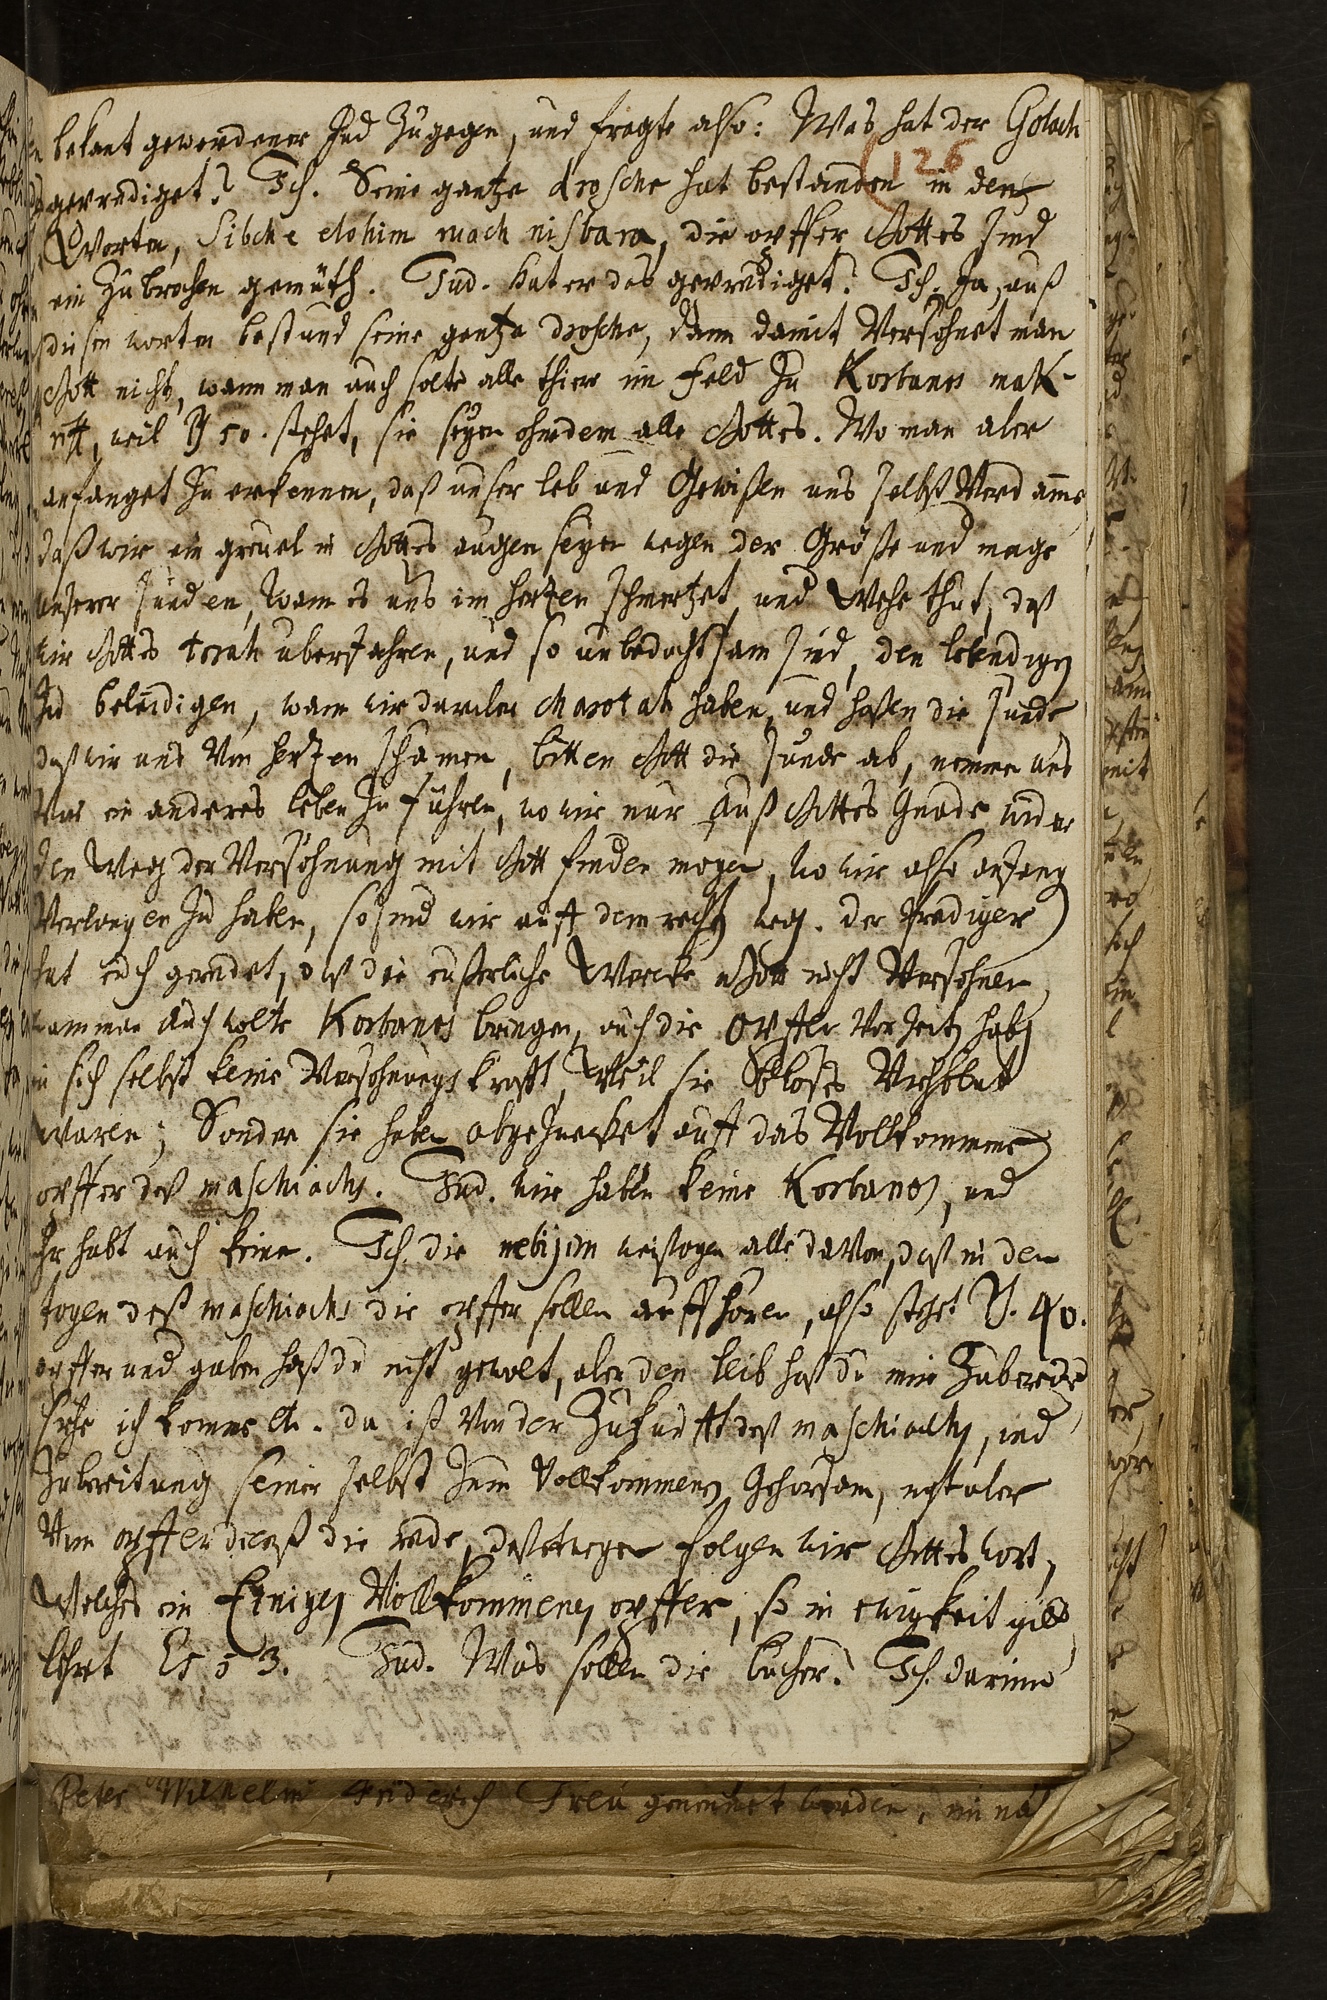 bekant gewordener Jud zugegen, und fragte also: Was hat der Golach
126
geprediget? Ich. Seine gantze drosche hat bestanden in den
Worten, Sibche elohim ruach nisbara, die opffer Gottes sind
ein zubrochen gemüth. Jud. hat er das geprediget? Ich. Ja, auß
diesen worten bestund seine gantze drosche, dann damit Versöhnet man
Gott nicht, wann man auch solte alle thier im feld zu Korbanos mak-
weil Ps 50. stehet, sie seyen ohnedem alle Gottes. Wo man aber
anfanget zu erkennen, daß unser leb und Gewißen uns selbst Verdamme
daß wir ein greuel in Gottes augen seyen wegen der Größe und menge
unserer sunden, wann es uns im hertzen schmertzet, und Wehe thut, daß
wir Gottes torah uberfahren, und so unbedachtsam sind, den lebendigen
beleidigen, wann wir daruber charotah haben, und haßen die sunde
daß wir uns Von hertzen schamen, bitten Gott die sunde ab, nemmen uns
Vor ein anderes leben zu führen, wo wir nur auß Gottes Gnade wider
den Weg der Versöhnung mit Gott finden mögen, wo wir also anfang
Verlangen zu haben, so sind wir auff dem rechten weg. der Prediger
hat auch geredet, daß die eußerliche Wercke Gott nicht Versöhnen,
wann man auch wolte Korbanos bringen, auch die Opffer Vor Zeiten haben
in sich selbst keine Versöhnungs krafft, Weil sie bloßes Viehblut
waren; Sonder sie haben abgezwecket auff das Vollkommene
opffer deß maschiachs. Jud. wir haben keine Korbanos, und
ihr habt auch keine. Ich. die nebijim weißagen alle daVon, daß in den
tagen deß maschiachs die opffer sollen auffhören, also stehet Ps. 40.
opffer und gaben hast du nicht gewolt, aber den leib hast du mir Zubereitet
sihe ich komme etc. da ist Von der Zukunfft deß maschiachs, und
Zubereitung seiner selbst zum Vollkommenen Gehorsam, nicht aber
Vom opfferdienst die rede, destwegen folgen wir Gottes wort,
Welches ein Einiges Vollkommenes opffer, so in ewigkeit gilt
lehret Es 53. Jud. Was sollen die bücher? Ich. darinne
Peter Wilhelm Friderich Treu genennet worden, im